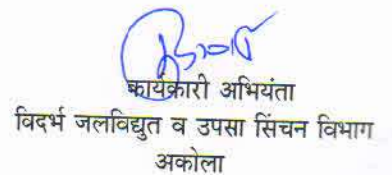 कार्यकारी अभियंता
विदर्भ जलविद्युत व उपसा सिंचन विभाग
अकोला